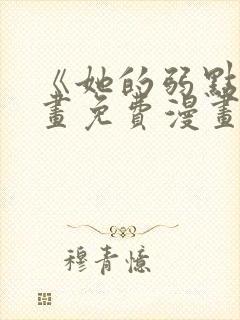 《她的弱點
畫免費漫畫
穆青憶